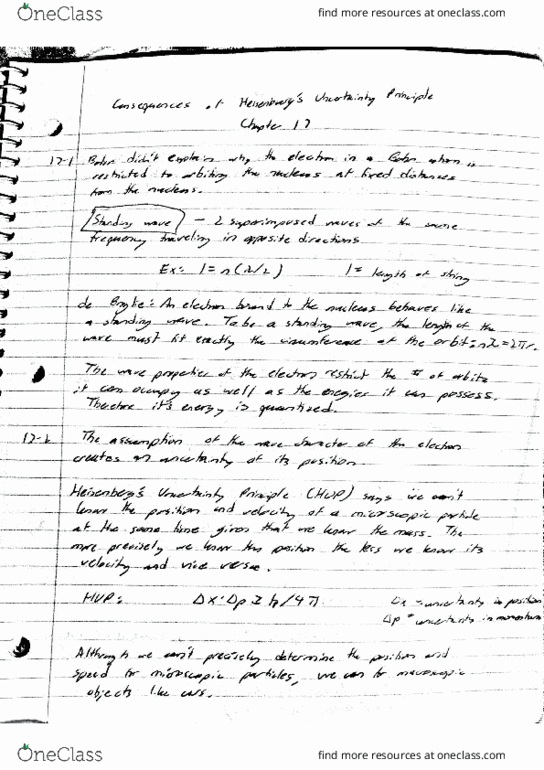 OneClass
find more resources at oneclass.com
Consequences of Heisenburg's Uncertainty Principle
Chapter 12
12-1 Bohr didn't explain why the electron in a Bohr atom is
restricted to orbiting the nucleus at fixed distances
from the nucleus.
Standing wave - 2 superimposed waves of the same
frequency traveling in opposite directions.
Ex: l = n(λ/2) l = length of string
de Broglie: An electron bound to the nucleus behaves like
a standing wave. To be a standing wave, the length of the
wave must fit exactly the circumference of the orbit: nλ = 2πr.
The wave properties of the electron restrict the # of orbits
it can occupy as well as the energies it can possess.
Therefore it's energy is quantized.
The assumption of the wave character of the electron
creates an uncertainty of its position.
Heisenberg's Uncertainty Principle (HUP) says we can't
know the position and velocity of a microscopic particle
at the same time given that we know the mass. The
more precisely we know the position the less we know its
velocity and vice versa.
HUP: Δx·Δp ≥ h/4π Δx = uncertainty in position
Δp = uncertainty in momentum
Although we can't precisely determine the position and
speed for microscopic particles, we can for macroscopic
objects like cars.
OneClass
find more resources at oneclass.com